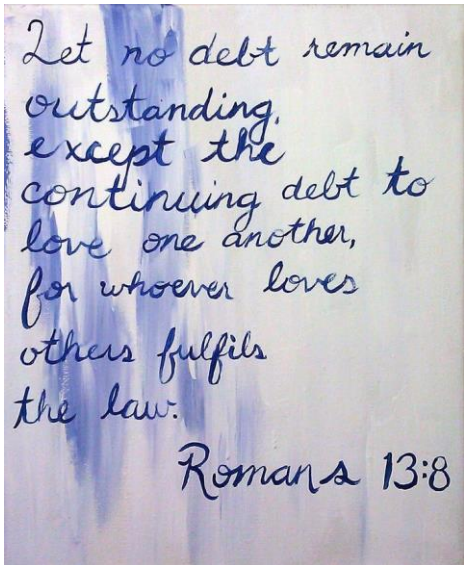 Let no debt remain
outstanding,
except the
continuing debt to
love one another,
for whoever loves
others fulfils
the law.
Romans 13:8